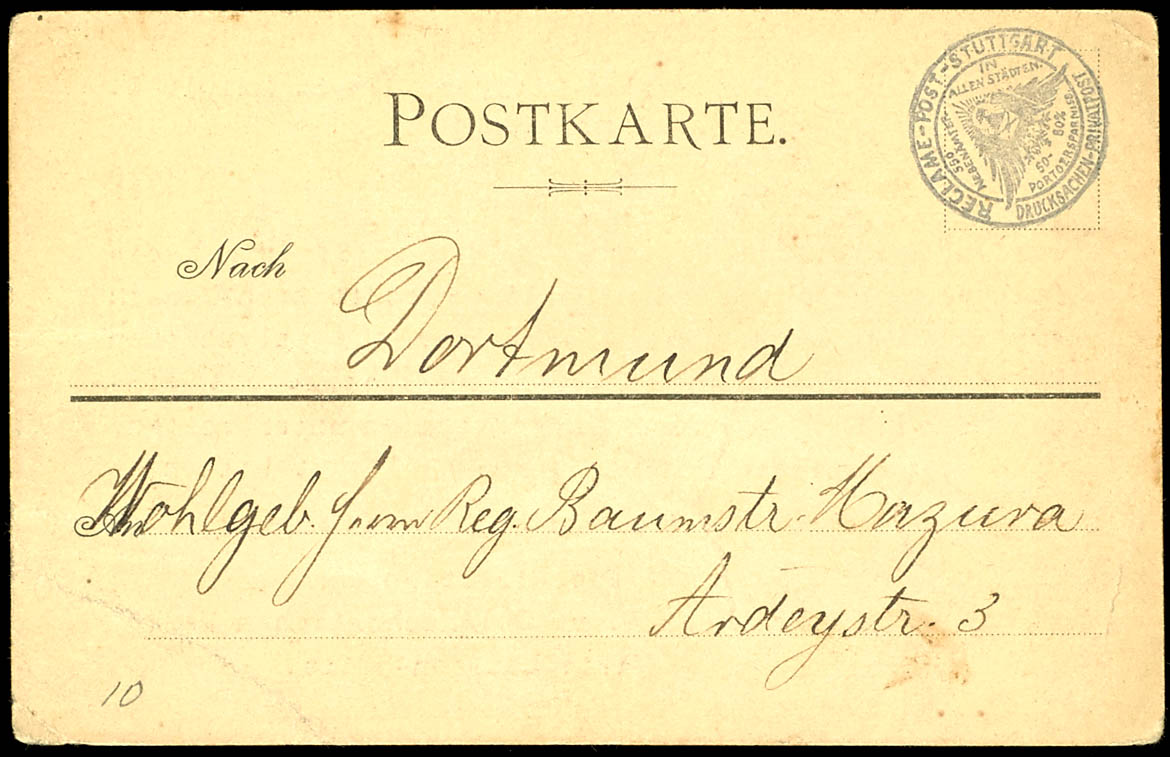 POSTKARTE.
RECLAME-POST-STUTTGART
DRUCKSACHEN-PRIVATPOST
IN
ALLEN STÄDTEN.
550
NEBENÄMTER
50-80%
PORTOERSPARNISS
Nach Dortmund
Wohlgeb. Herrn Reg. Baumstr. Mazura
Ardeystr. 3
10